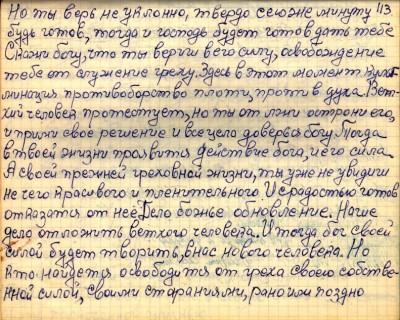 Но ты верь не уклонно, твердо сею же минуту из
будь готов, тогда и господь будет готов дать тебе
Скажи богу, что ты веришь в его силу, освобождение
тебе от служение греху. Здесь в этот момент куль
минация противоборство плоти, против духа. Вет-
хий человек протестует, но ты от лжи отстрони его,
и прими своё решение и всецело доверься богу. Тогда
в твоей жизни проявится действие бога, и его сила
А своей прежней греховной жизни, ты уже не увидиш
не чего красивого и пленительного. И с радостью готов
отказатся от неё. Дело божье обновление. Наше
дело отложить ветхого человека. И тогда бог своей
силой будет творить, в нас нового человека. Но
кто найдется освободится от греха своего собстве-
нной силой, своими стараниями, рано или поздно